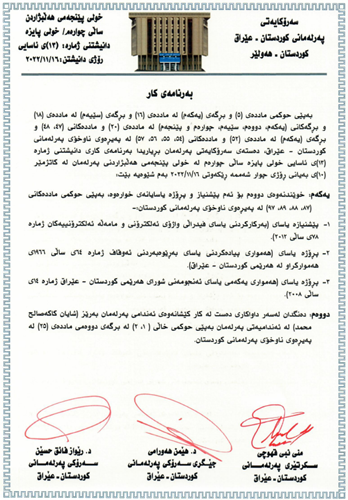 سەرۆکایەتی
پەرلەمانی کوردستان - عێراق
کوردستان - هەولێر
خولی پێنجەمی هەڵبژاردن
ساڵی چوارەم/ خولی پایزە
دانیشتنی ژمارە: (١٣)ی ئاسایی
ڕۆژی دانیشتن/ ٢٠٢٢/١١/١٦
بەرنامەی کار
بەپێی حوکمی ماددەی (٥) و بڕگەی (یەکەم) لە ماددەی (١٦) و بڕگەی (سێیەم) لە ماددەی (١٨)
و بڕگەکانی (یەکەم، دووەم، سێیەم، چوارەم و پێنجەم) لە ماددەی (٢٠) و ماددەکانی (٤٧، ٤٨) و
بڕگەی (یەکەم) لە ماددەی (٥٢) و ماددەکانی (٥٤، ٥٥، ٥٦، ٥٧) لە پەیڕەوی ناوخۆی پەرلەمانی
کوردستان - عێراق، دەستەی سەرۆکایەتی پەرلەمان بڕیاریدا بەرنامەی کاری دانیشتنی ژمارە
(١٣)ی ئاسایی خولی پایزی ساڵی چوارەم لە خولی پێنجەمی هەڵبژاردنی پەرلەمان لە کاتژمێر
(١٠)ی بەیانی ڕۆژی چوار شەممە ڕێکەوتی ٢٠٢٢/١١/١٦ بەم شێوەیە بێت:
یەکەم: خوێندنەوەی دووەم بۆ ئەم پێشنیاز و پڕۆژە یاسایانەی خوارەوە، بەپێی حوکمی ماددەکانی
(٨٧، ٨٨، ٨٩، ٩٧) لە پەیڕەوی ناوخۆی پەرلەمانی کوردستان:-
١- پێشنیازە یاسای (بەرکارکردنی یاسای فیدراڵی واژۆی ئەلکترۆنی و مامەڵە ئەلکترۆنییەکان ژمارە
٧٨ی ساڵی ٢٠١٢).
٢- پڕۆژە یاسای (هەمواری پیادەکردنی یاسای بەڕێوەبەردنی ئەوقاف ژمارە ٦٤ی ساڵی ١٩٦٦ی
هەموارکراو لە هەرێمی کوردستان - عێراق).
٣- پڕۆژە یاسای (هەمواری یەکەمی یاسای ئەنجومەنی شورای هەرێمی کوردستان ژمارە ١٤ی
ساڵی ٢٠٠٨).
دووەم: دەنگدان لەسەر داواکاری دەست لە کار کێشانەوەی ئەندامی پەرلەمان بەڕێز (شایان کاکەصالح
محمد) لە ئەندامێتی پەرلەمان بەپێی حوکمی خاڵی (١، ٢) لە بڕگەی دووەمی ماددەی (٢٥) لە
پەیڕەوی ناوخۆی پەرلەمانی کوردستان.
منى نبي قهوچي
سکرتێری پەرلەمانی
کوردستان - عێراق
د. هێمن هەورامی
جێگری سەرۆکی پەرلەمانی
کوردستان - عێراق
د. ڕێواز فائق حسێن
سەرۆکی پەرلەمانی
کوردستان - عێراق